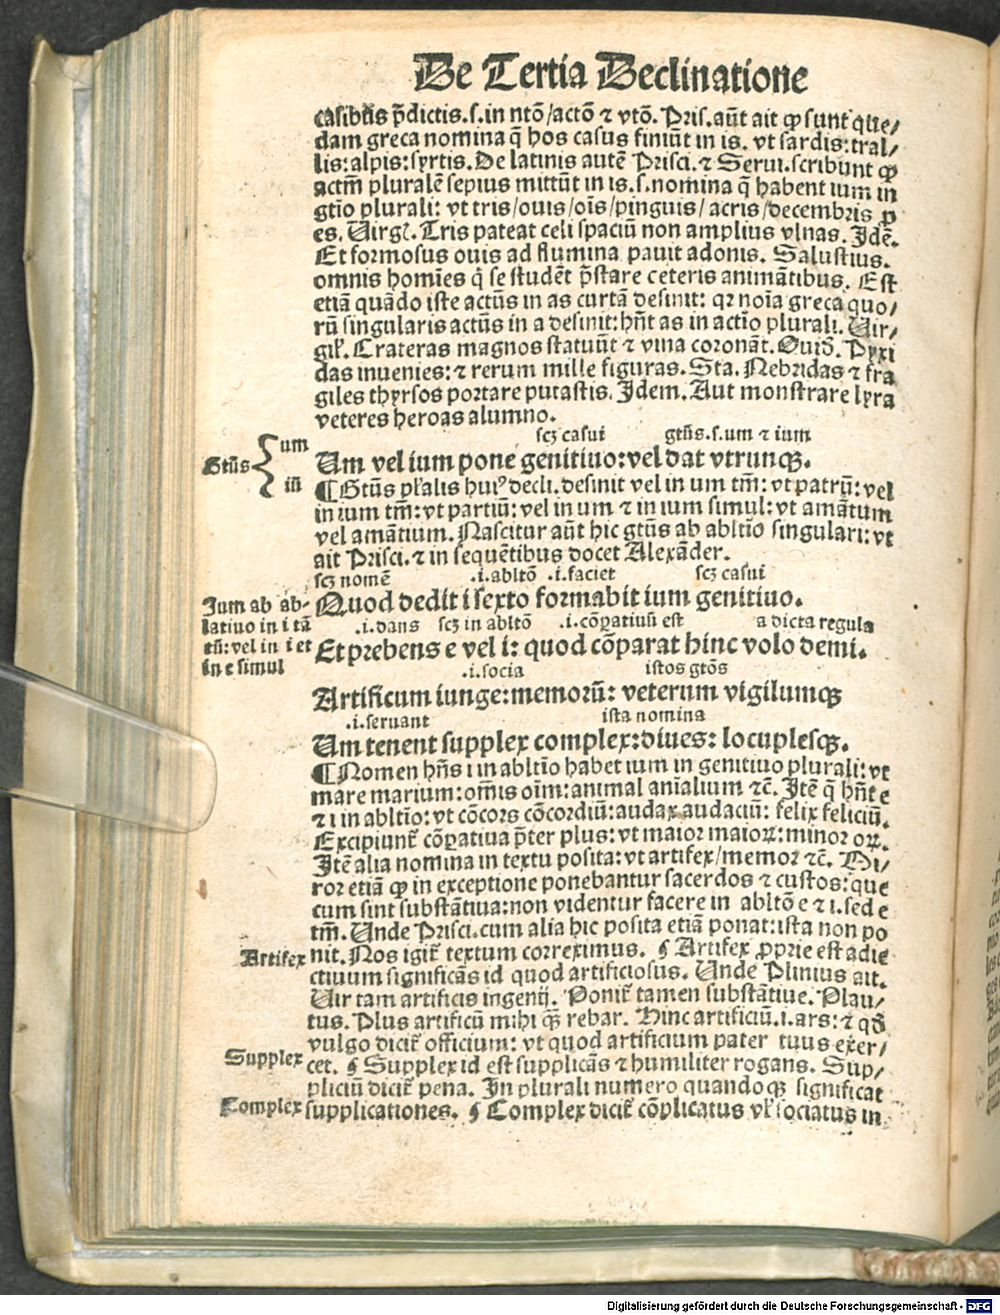 De Tertia Declinatione
casibus p̄dictis.s.in ntō/actō ⁊ vtō. Pris.aūt ait ꝙ sunt que/
dam greca nomina q̄ hos casus finiūt in is. vt sardis:tral/
lis:alpis:syrtis. De latinis autē Prisci.⁊ Serui.scribunt ꝙ
actm̄ pluralē sepius mittūt in is.s.nomina q̄ habent ium in
gtīo plurali: vt tris/ouis/oīs/pinguis/acris/decembris p
es. Virgł. Tris pateat celi spaciū non amplius vlnas. Jdē.
Et formosus ouis ad flumina pauit adonis. Salustius.
omnis homīes q̇ se studēt p̄stare ceteris animātibus. Est
etiā quādo iste actūs in as curtā desinit: qꝛ noīa greca quo/
rū singularis actūs in a desinit:hn̄t as in actīo plurali. Vir/
gił. Crateras magnos statuūt ⁊ vina coronāt. Ouid̄. Pyxi
das inuenies:⁊ rerum mille figuras. Sta. Nebridas ⁊ fra
giles thyrsos portare putastis. Jdem. Aut monstrare lyra
veteres heroas alumno.
scꝫ casui gtūs.s.um ⁊ ium
Gtūs um iū
Um vel ium pone genitiuo:vel dat vtrunqꝫ.
¶Gtūs płalis huiꝰ decli.desinit vel in um tm̄:vt patrū:vel
in ium tm̄:vt partiū:vel in um ⁊ in ium simul:vt amātum
vel amātium. Nascitur aūt hic gtūs ab abltīo singulari:vt
ait Prisci.⁊ in sequētibus docet Alexāder.
scꝫ nomē .i.abltō .i.faciet scꝫ casui
Quod dedit i sexto formabit ium genitiuo.
Jum ab ab-
latiuo in i tā
tū:vel in i et
in e simul
.i.dans scꝫ in abltō .i.cōpatiuū est a dicta regula
Et prebens e vel i: quod cōparat hinc volo demi.
.i.socia istos gtōs
Artificum iunge:memorū: veterum vigilumqꝫ
.i.seruant ista nomina
Um tenent supplex complex:diues: locuplesqꝫ.
¶Nomen hn̄s i in abltīo habet ium in genitiuo plurali:vt
mare marium:om̄is oīm:animal anīalium ⁊c̄. Jtē q̄ hn̄t e
⁊ i in abltīo:vt cōcors cōcordiū:audax audaciū: felix feliciū.
Excipiunt̄ cōꝑatiua p̄ter plus:vt maior maioꝝ:minor oꝝ.
Jtē alia nomina in textu posita:vt artifex/memor ⁊c̄. Mi/
ror etiā ꝙ in exceptione ponebantur sacerdos ⁊ custos:que
cum sint substātiua:non videntur facere in abltō e ⁊ i.sed e
tm̄. Unde Prisci.cum alia hic posita etiā ponat:ista non po
nit. Nos igit̄ textum correximus. ¶ Artifex ꝓprie est adie
Artifex
ctiuum significās id quod artificiosus. Unde Plinius ait.
Uir tam artificis ingenij. Ponit̄ tamen substātiue. Plau/
tus. Plus artificū mihi qꝫ rebar. Hinc artificiū.i.ars:⁊ qd̄
vulgo dicit̄ officium: vt quod artificium pater tuus exer/
cet. ¶ Supplex id est supplicās ⁊ humiliter rogans. Sup/
Supplex
pliciū dicit̄ pena. In plurali numero quandoqꝫ significat
supplicationes. ¶ Complex dicit̄ cōplicatus vł sociatus in
Complex
Digitalisierung gefördert durch die Deutsche Forschungsgemeinschaft - DFG